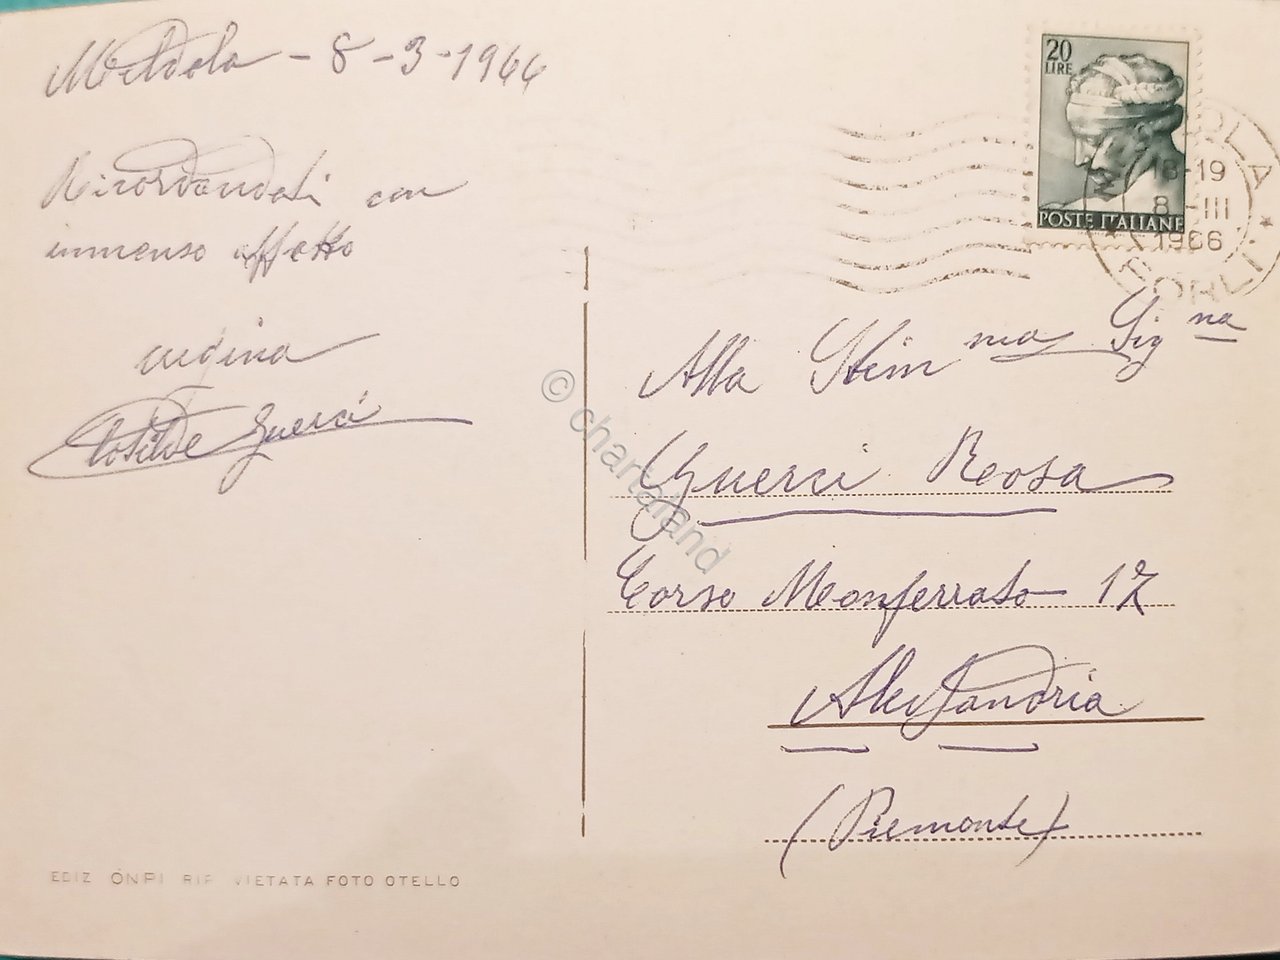 Meldola - 8 - 3 - 1966
Ricordandoti con
immenso affetto
cugina
Clotilde Guerci
EDIZ ONPI RIP VIETATA FOTO OTELLO
20
LIRE
POSTE ITALIANE
18-19
8 -III
1966
FORLI
Alla Stim ma Sig na
Guerci Rosa
Corso Monferrato 17
Alessandria
(Piemonte)
© chartaland